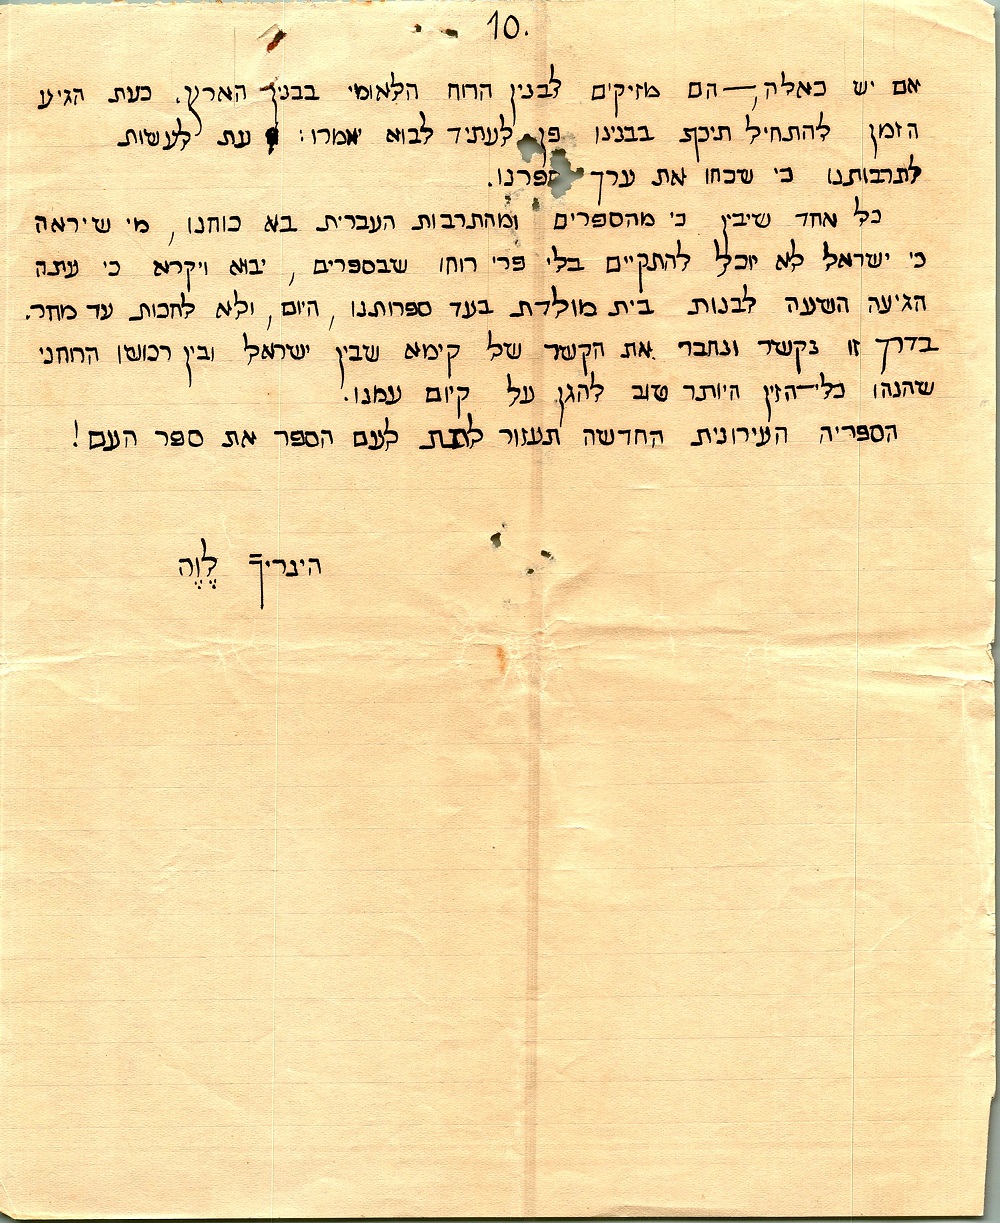 10.
אם יש כאלה,—הם מזיקים לבנין הרוח הלאומי בבנין הארץ. כעת הגיע
הזמן להתחיל תיכף בבנינו פן לעתיד לבוא יאמרו: עת לעשות
לתרבותנו כי שכחו את ערך ספרנו.
כל אחד שיבין כי מהספרים ומהתרבות העברית בא כוחנו, מי שיראה
כי ישראל לא יוכל להתקיים בלי פרי רוחו שבספרים, יבוא ויקרא כי עתה
הגיעה השעה לבנות בית מולדת בעד ספרותנו, היום, ולא לחכות עד מחר.
בדרך זו נקשר ונחבר את הקשר של קימא שבין ישראל ובין רכושו הרוחני
שהנהו כלי-הזין היותר טוב להגן על קיום עמנו.
הספריה העירונית החדשה תעזור לתת לעם הספר את ספר העם!
הינריך לֶוֶה